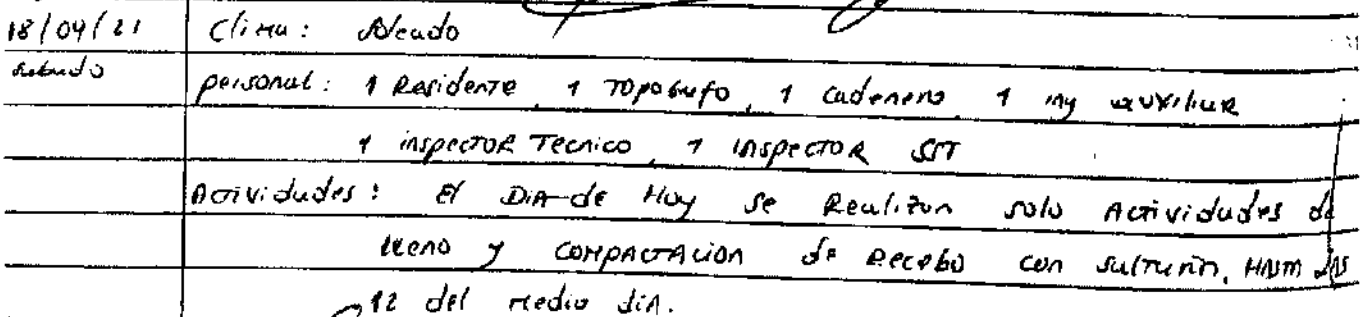 18/04/21 Clima: Soleado
Sabado personal: 1 Residente, 1 Topografo, 1 Cadenero, 1 ing auxiliar
1 inspector Tecnico, 1 inspector SST
Actividades: El Dia de Hoy se Realizan solo Actividades de
lleno y compactacion de Recebo con saltarin, Hasta las
12 del medio dia.